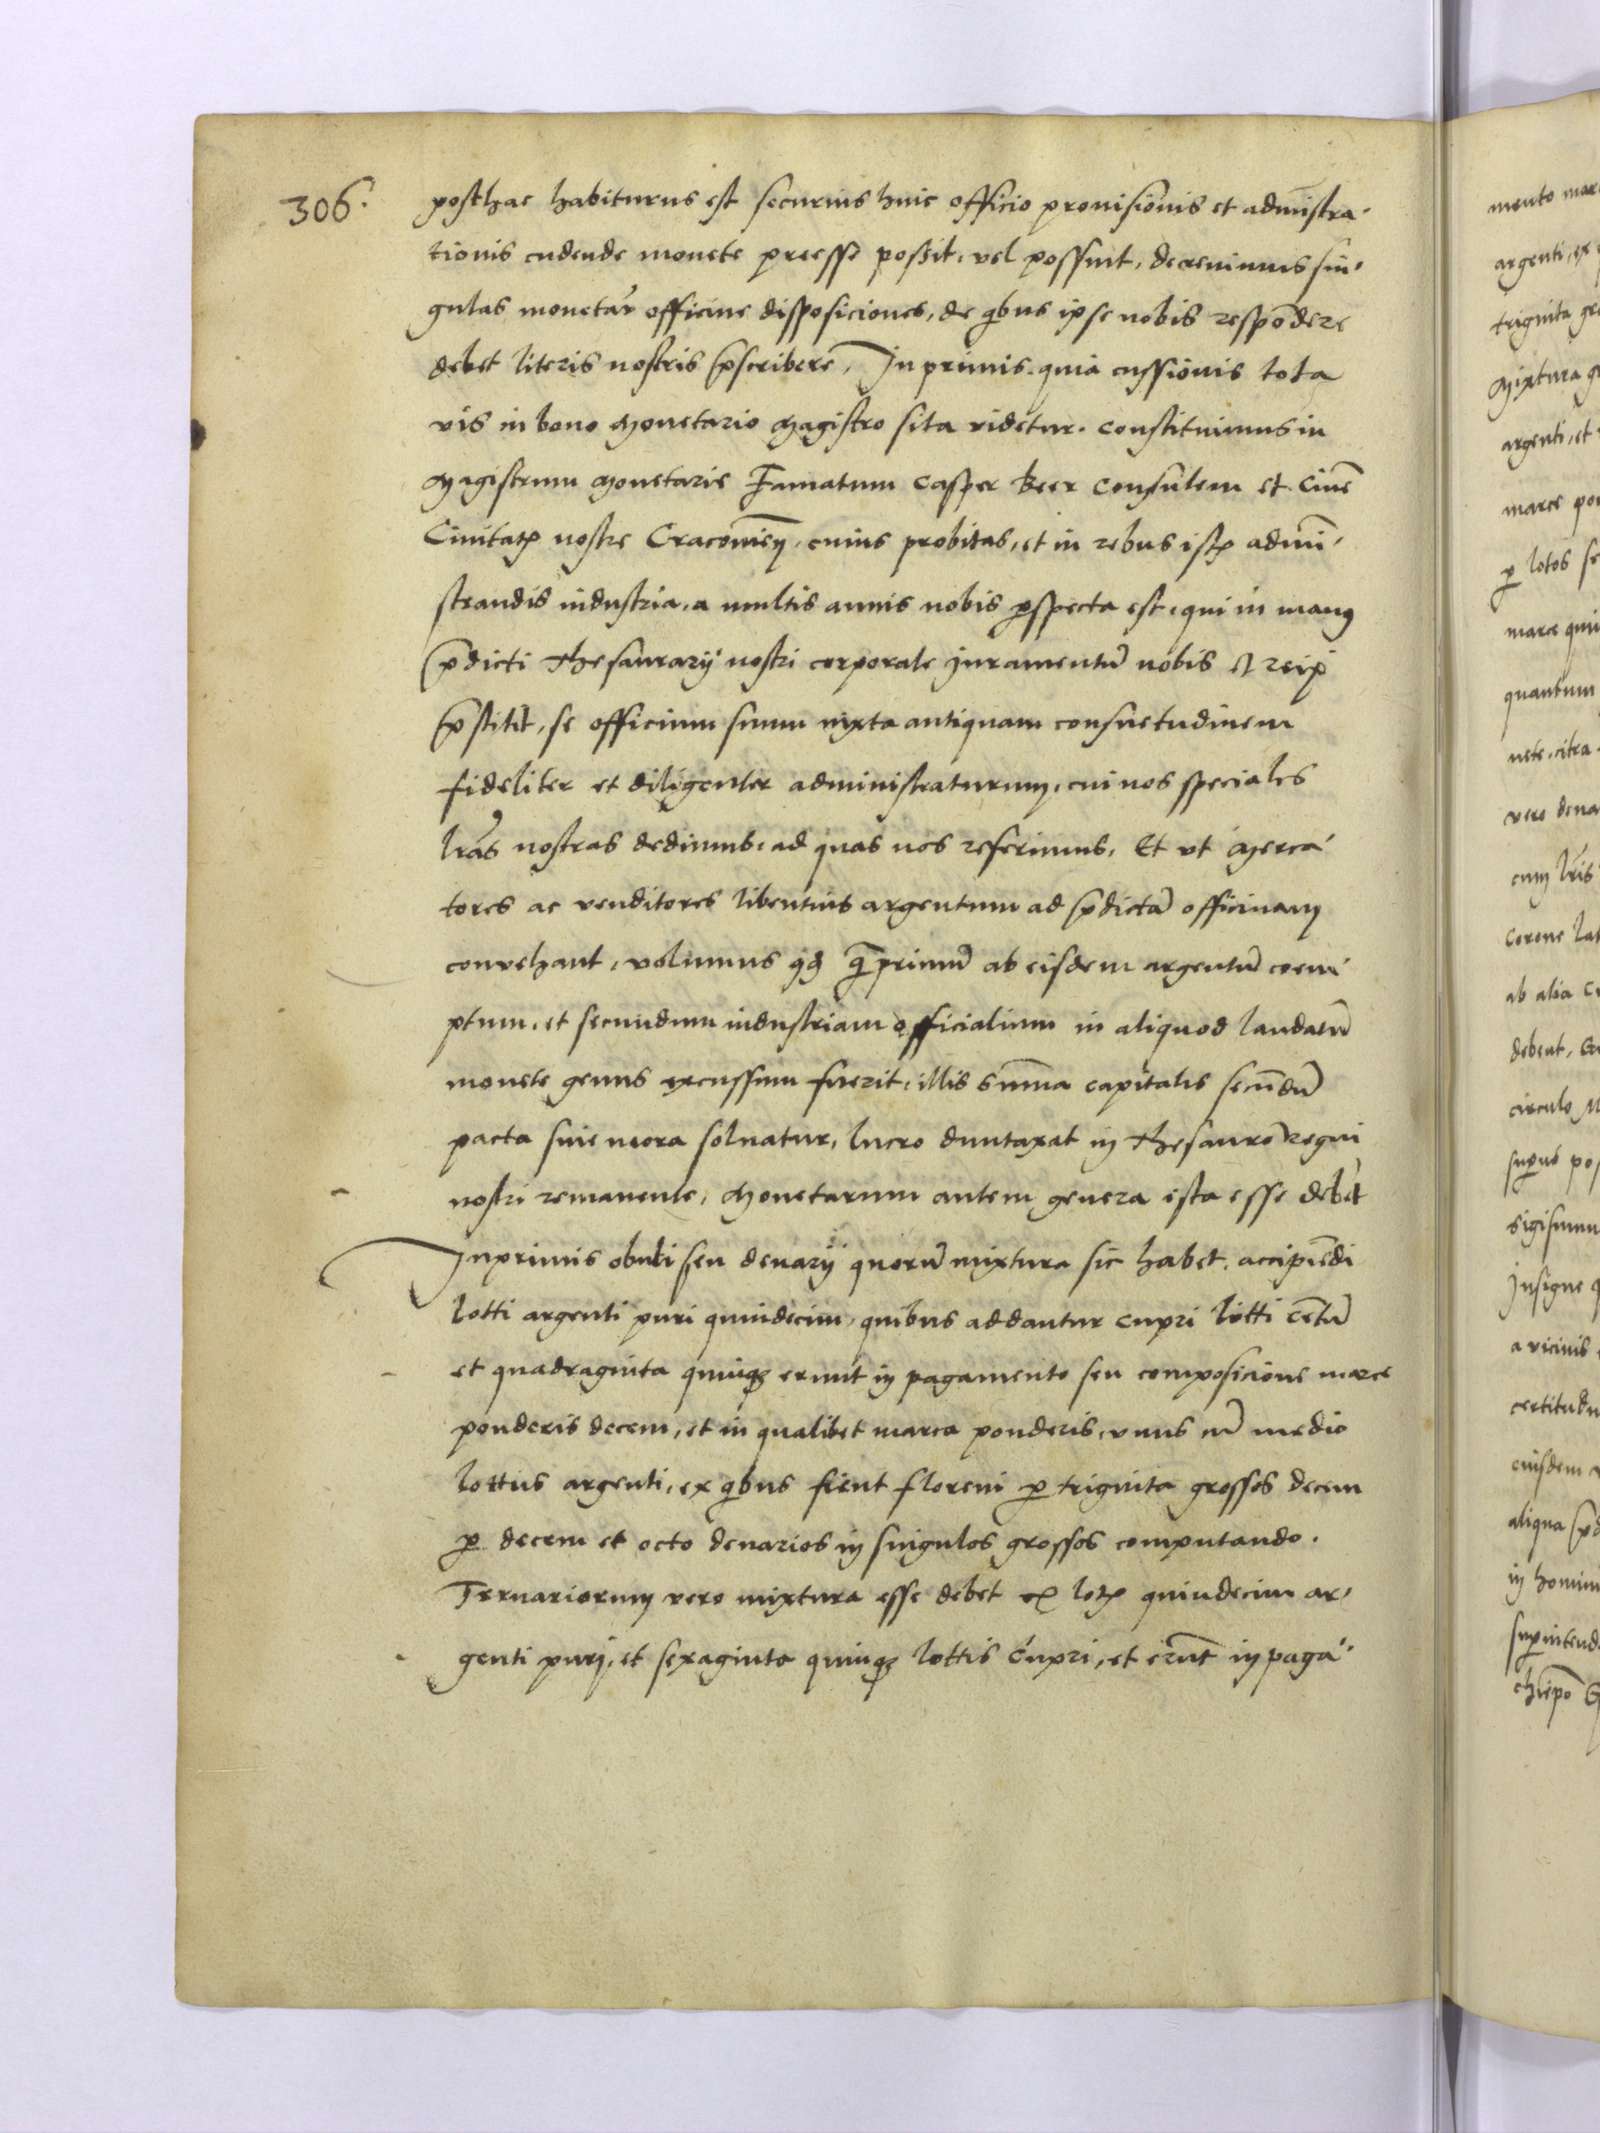 306.
posthac habiturus est securius huic officio prouisionis et admīstra-
tionis cudende monete preesse possit, vel possint, decreuimus sin-
gulas monetar̄ officine disposiciones, de qībus ipse nobis respōdere
debet literis nostris p̄scribere. In primis, quia cussionis tota
vis in bono Monetario Magistro sita videtur. constituimus in
Magistrum Monetarie Famatum Casper Beer Consulem et Ciuē
Ciuitatꝭ nostre Cracouieñ, cuius probitas, et in rebus istꝭ admī-
strandis industria, a multis annis nobis ꝑspecta est, qui in manꝰ
p̄dicti Thesaurarij nostri corporale Juramentū nobis et reip̄
p̄stitit, se officium suum iuxta antiquam consuetudinem
fideliter et diligenter administraturum, cui nos speciales
lr̄as nostras dedimus, ad quas nos referimus, Et vt Merca-
tores ac venditores libentius argentum ad p̄dictā officinam
convehant, volumus qđ q̄primū ab eisdem argentū coem-
ptum, et secundum industriam officialium in aliquod laudatū
monete genus excussum fuerit, illis sum̄a capitalis secūdū
pacta sine mora soluatur, lucro duntaxat in Thesauro regni
nostri remanente, Monetarum autem genera ista esse debēt
Inprimis obuli seu denarij quorū mixtura sic habet, accipiēdi
lotti argenti puri quindecim, quibus addantur cupri lotti cētū
et quadraginta quinqꝫ erunt in pagamento seu composicione marce
ponderis decem, et in qualibet marca ponderis, vnus cū medio
lottus argenti, ex qībus fient floreni ꝑ triginta grossos decem
ꝑ decem et octo denarios in singulos grossos computando.
Ternariorum vero mixtura esse debet ex lotꝭ quindecim ar-
genti puri, et sexaginta quinqꝫ lottis cupri, et erūt in paga-
mento mar
argenti, ex
triginta gr
Mixtura
argenti, et
marce po
ꝑ lotos se
marce qui
quantum
nete, citra
vero dena
cum lr̄is
Corone la
ab alia
debent,
circulo
suꝑius pos
Sigismu
Insigne q
a vicinis
certitudi
eiusdem
aliqua p̄d
in homin
suꝑintend